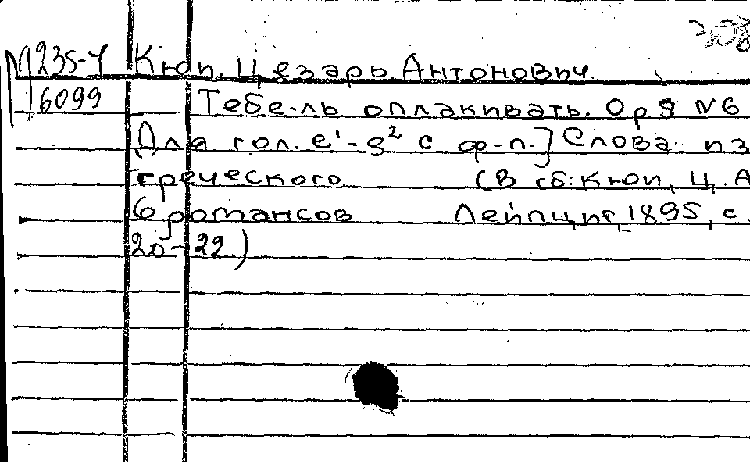 М235-4 Кюи, Цезарь Антонович.
6099 Тебе-ль оплакивать. Ор 9 №6
[Для гол. e¹-g² с ф-п.] Слова из
греческого (В сб: Кюи, Ц. А
6 романсов Лейпциг, 1895, с.
20-22)